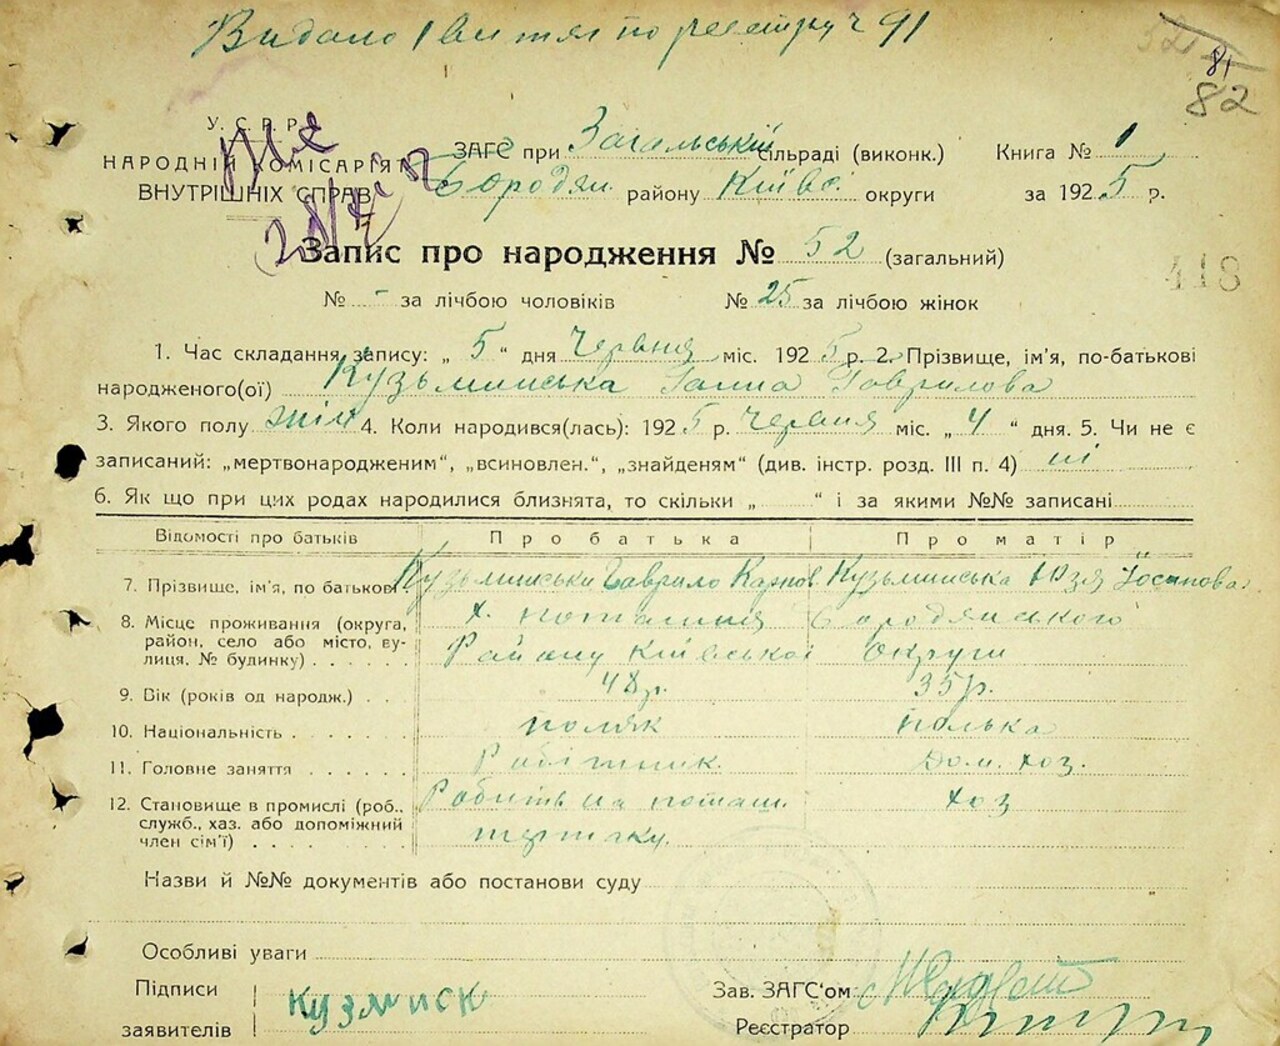 Видано витяг по реєстру ч 91
81
82
У.С.Р.Р.
НАРОДНІЙ КОМІСАРІЯТ
ВНУТРІШНІХ СПРАВ
ЗАГС при Загальській сільраді (виконк.) Книга № 1
Бородян. району Київс. округи за 1925 р.
Запис про народження № 52 (загальний)
418
№ - за лічбою чоловіків № 25 за лічбою жінок
1. Час складання запису: „ 5 “ дня Червня міс. 1925 р. 2. Прізвище, ім'я, по-батькові
народженого(ої) Кузьминська Ганна Гаврилова
3. Якого полу жін 4. Коли народився(лась): 1925 р. Червня міс. „ 4 “ дня. 5. Чи не є
записаний: „мертвонародженим“, „всиновлен.“, „знайденям“ (див. інстр. розд. III п. 4) ні
6. Як що при цих родах народилися близнята, то скільки „ “ і за якими №№ записані
Відомості про батьків Про батька Про матір
7. Прізвище, ім'я, по батькові Кузьминськи Гаврило Карпов. Кузьминська Юзя Йосипова
8. Місце проживання (округа, х. поташня Бородянського
район, село або місто, ву- Району Київської Округи
лиця, № будинку)
9. Вік (років од народж.) 48 р. 35 р.
10. Національність поляк полька
11. Головне заняття Робітник. Дом. хоз.
12. Становище в промислі (роб., Робить на поташ. хоз
служб., хаз. або допоміжний тартаку.
член сім'ї)
Назви й №№ документів або постанови суду
Особливі уваги
Підписи Кузмиск Зав. ЗАГС'ом
заявителів Реєстратор